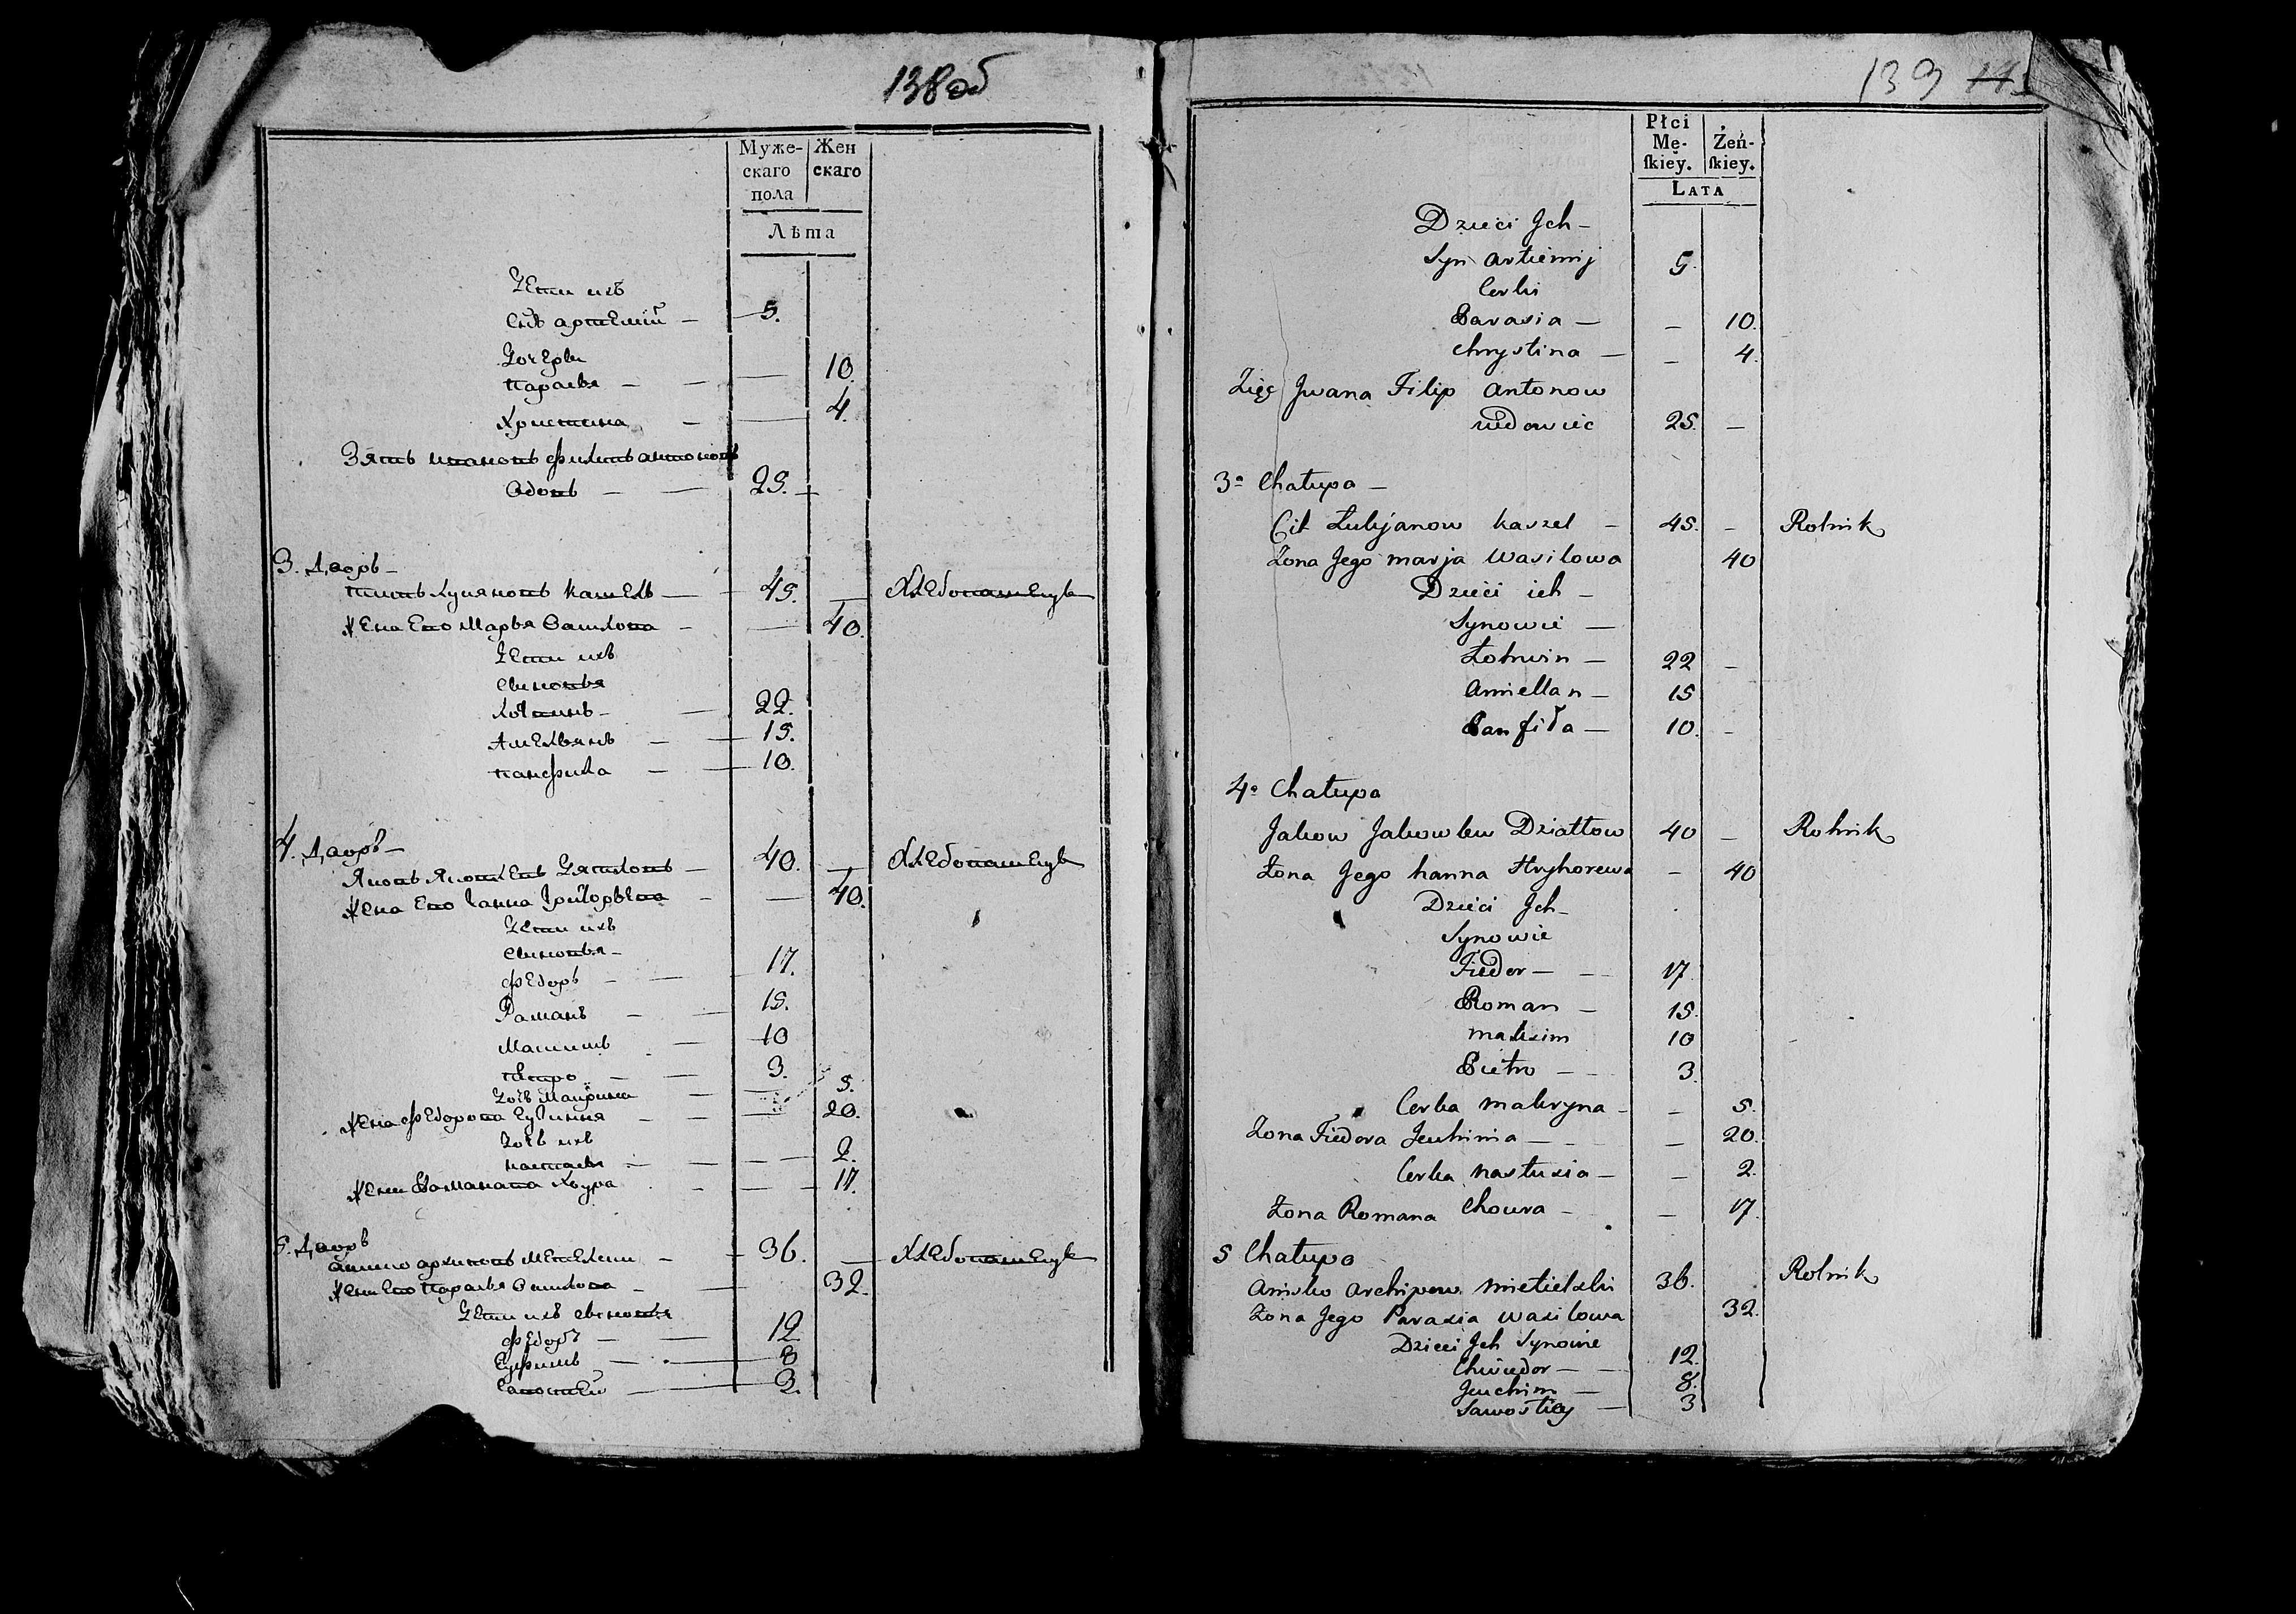 138об
Муже-
скаго
пола
Жен
скаго
Лѣта
Дети ихъ
Снъ артемiй — 5.
Дочери
Парасья — — — 10.
Христина — — 4.
Зять ивановъ филипъ антоновъ
вдовъ — — 25. —
3. Дворъ —
Титъ Лукяновъ Кашель — 45. — Хлебопашецъ
Жена Ево Марья Василова — — 40.
Дети ихъ
Сыновья
Лотвинъ — — 22.
Амельянъ — — 15.
Панфила — — 10.
4. Дворъ —
Яковъ Яковлевъ Дятловъ — 40. — Хлебопашецъ
Жена Ево Ганна Григорьева — — 40.
Дети ихъ
Сыновья —
Федоръ — — 17.
Романъ — — 15.
Максимъ — 10
Петро — — 3.
Дочь Макрина — — 5.
Жена Федорова Еухиння — — — 20.
Дочь ихъ
Настасья — — — 2.
Жена Романова Хоура — — — 17.
5. Дворъ
Анисько архиповъ Метелски — 36. — Хлебопашецъ
Жена Ево Парасья Василова — — 32.
Дети ихъ сыновья
Федоръ — — 12
Еуфимъ — — 8
Савостей — 3.
139
Płci
Mę-
ſkiey.
Żeń-
ſkiey.
LATA
Dzieci Jch —
Syn Artiemij 5.
Cerki
Parasia — — 10.
Chrystina — — 4.
Zięć Jwana Filip Antonow
wdowiec 25. —
3a Chałupa —
Cit Łukjanow Kaszel — 45. — Rolnik
Żona Jego Marja Wasilowa 40
Dzieci ich —
Synowie —
Łotwin — 22 —
Amiellan — 15
Panfiła — 10. —
4a Chałupa
Jakow Jakowlew Dziatłow 40 — Rolnik
Żona Jego Hanna Hryhorewa — 40
Dzieci Jch —
Synowie
Fiedor — — 17.
Roman — 15.
Maksim 10
Pietro — — 3.
Cerka Makryna — — 5.
Żona Fiedora Jeuhinia — — — 20.
Cerka Nastusia — — 2.
Żona Romana Choura — — 17.
5 Chałupa
Anisko Archipow Mietielski 36. Rolnik
Żona Jego Parasia Wasilowa 32.
Dzieci Jch Synowie
Chwiedor — — 12.
Jeuchim — 8.
Sawostiey — 3